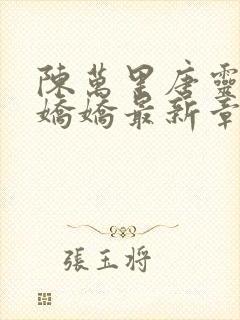 陳萬里唐靈
嬌嬌最新章
張玉将